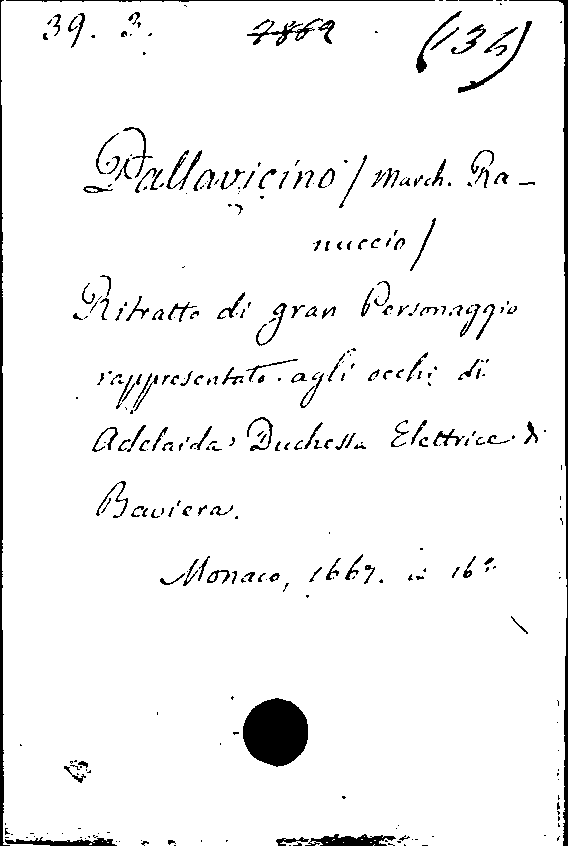 39. 3. 7869 (136)
Pallavicino / March. Ra-
nuccio /
Ritratto di gran Personaggio
rappresentato agli occhi di
Adelaida Duchessa Elettrice di
Baviera.
Monaco, 1667. in 16°